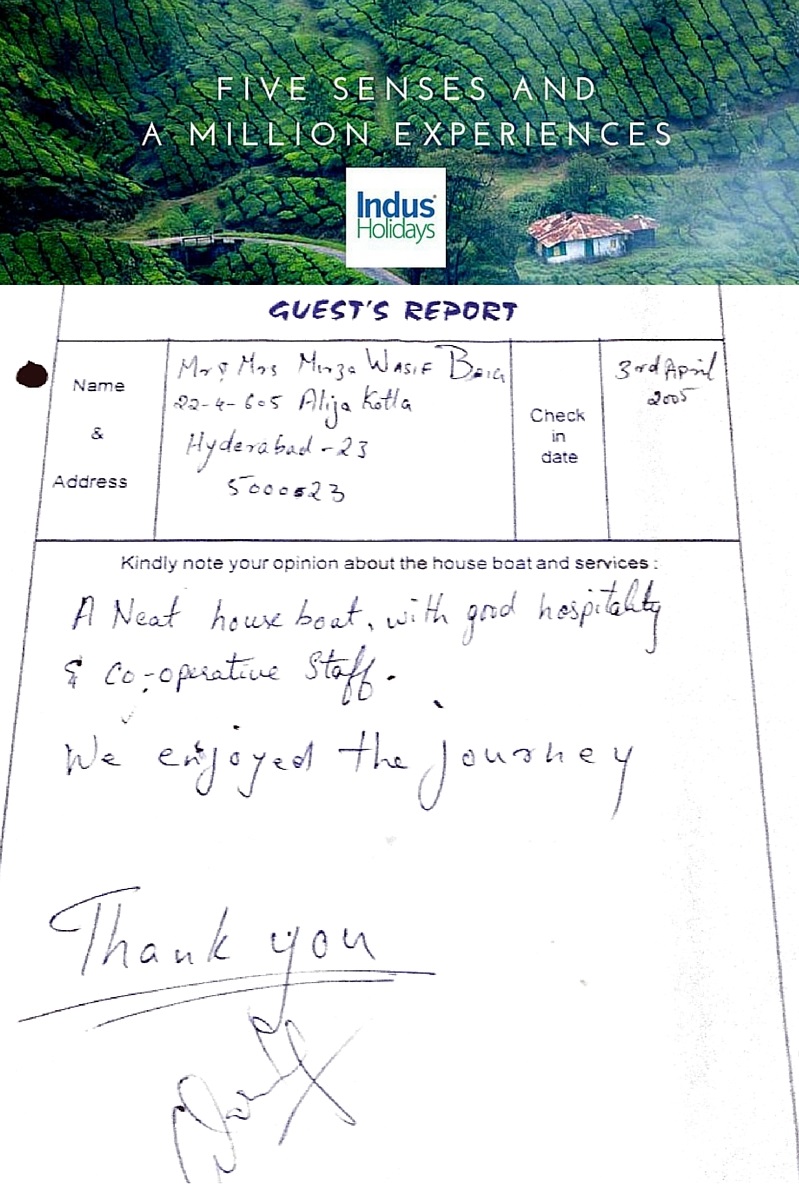 FIVE SENSES AND
A MILLION EXPERIENCES
Indus®
Holidays
GUEST'S REPORT
Name
&
Address
Mr & Mrs Mirza WASIF BAIG
22-4-605 Alija Kotla
Hyderabad - 23
5000023
Check
in
date
3rd April
2005
Kindly note your opinion about the house boat and services :
A Neat house boat, with good hospitality
& Co-operative Staff.
We enjoyed the journey
Thank you